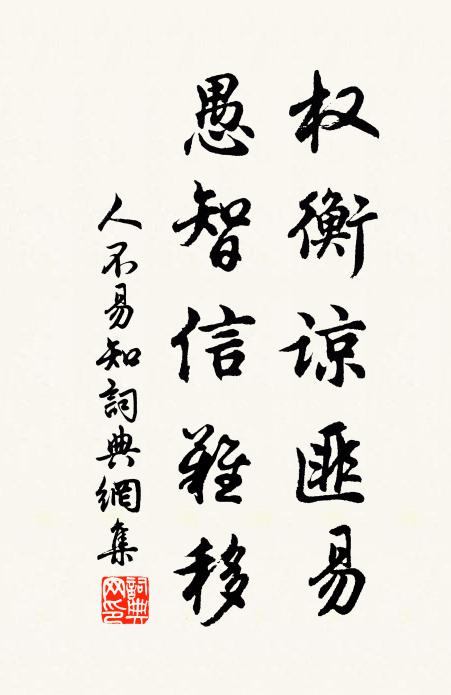 权衡谅匪易
愚智信難移
人不易知詞典網集
詞典网印